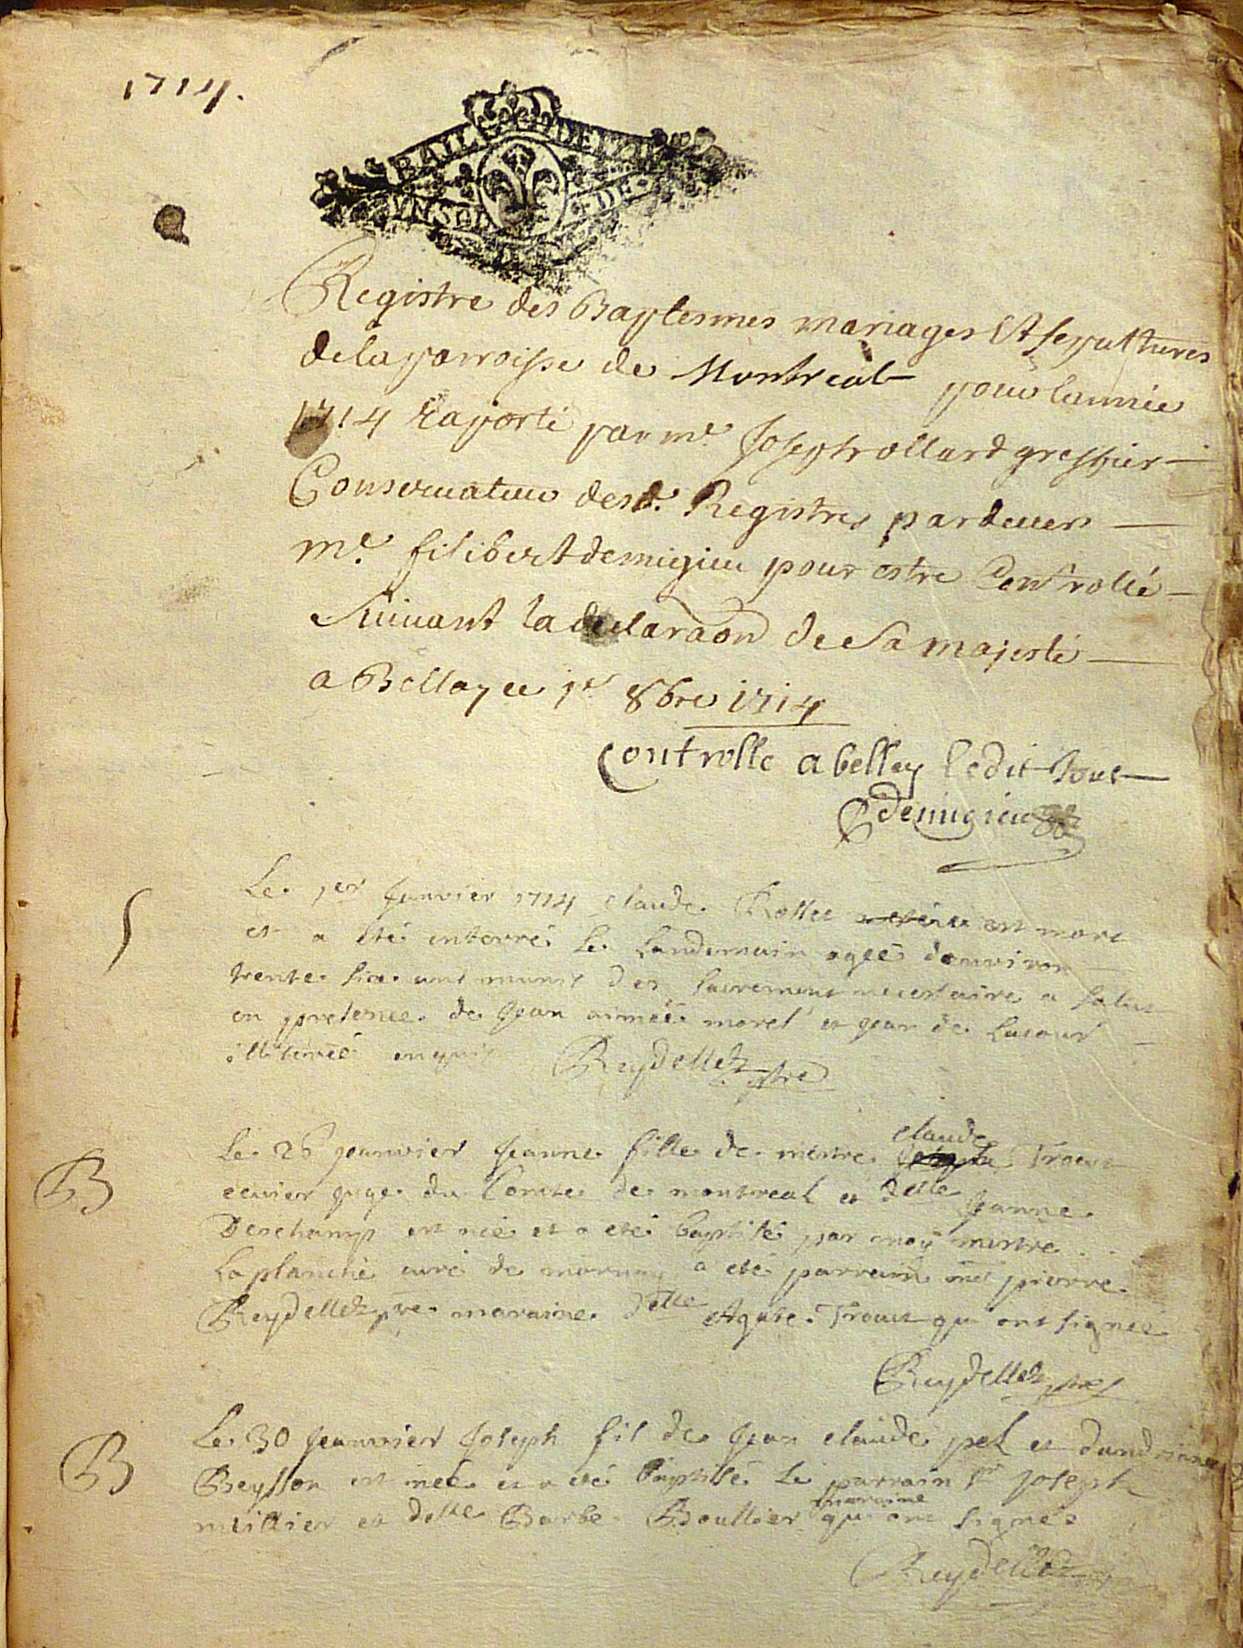 1714.
BAIL DE
UN SOL DE
Registre des Baptesmes mariages Et sepultures
de la parroisse de Montreal pour lannée
1714 raporté par me. Joseph rollard greffier
Conservateur desd. Registres pardevers
me. filibert demigieu pour estre Controllé
suivant la declaraon de sa majesté
a Bellay ce 1er 8bre 1714
Controlle a belley ledit Jour
demigieu
Le 1er Janvier 1714 claude Rollet est mort
et a eté enterré le Landemain agee denviron
trente six ans munit des sacrement necessaire a salut
en presence de Jean aimée morel et jean de lacour
illiteréé enquis Reydellet ptre
B
Le 26 jeanvier Jeanne fille de mestre claude Trocu
ecuier juge du Comté de montreal et delle Jeanne
Deschamp est née et a eté baptisé par moy mestre
Laplanche curé de mornay a eté parrain me pierre
Reydellet ptre maraine delle Agate Trocu qui ont signéé
Reydellet ptre
B
Le 30 jeanvier Joseph fil de Jean claude pel et dandriane
Beysson est née et a eté baptisé le parrain sr Joseph
millier et delle Barbe Boullier maraine qui ont signéé
Reydellet